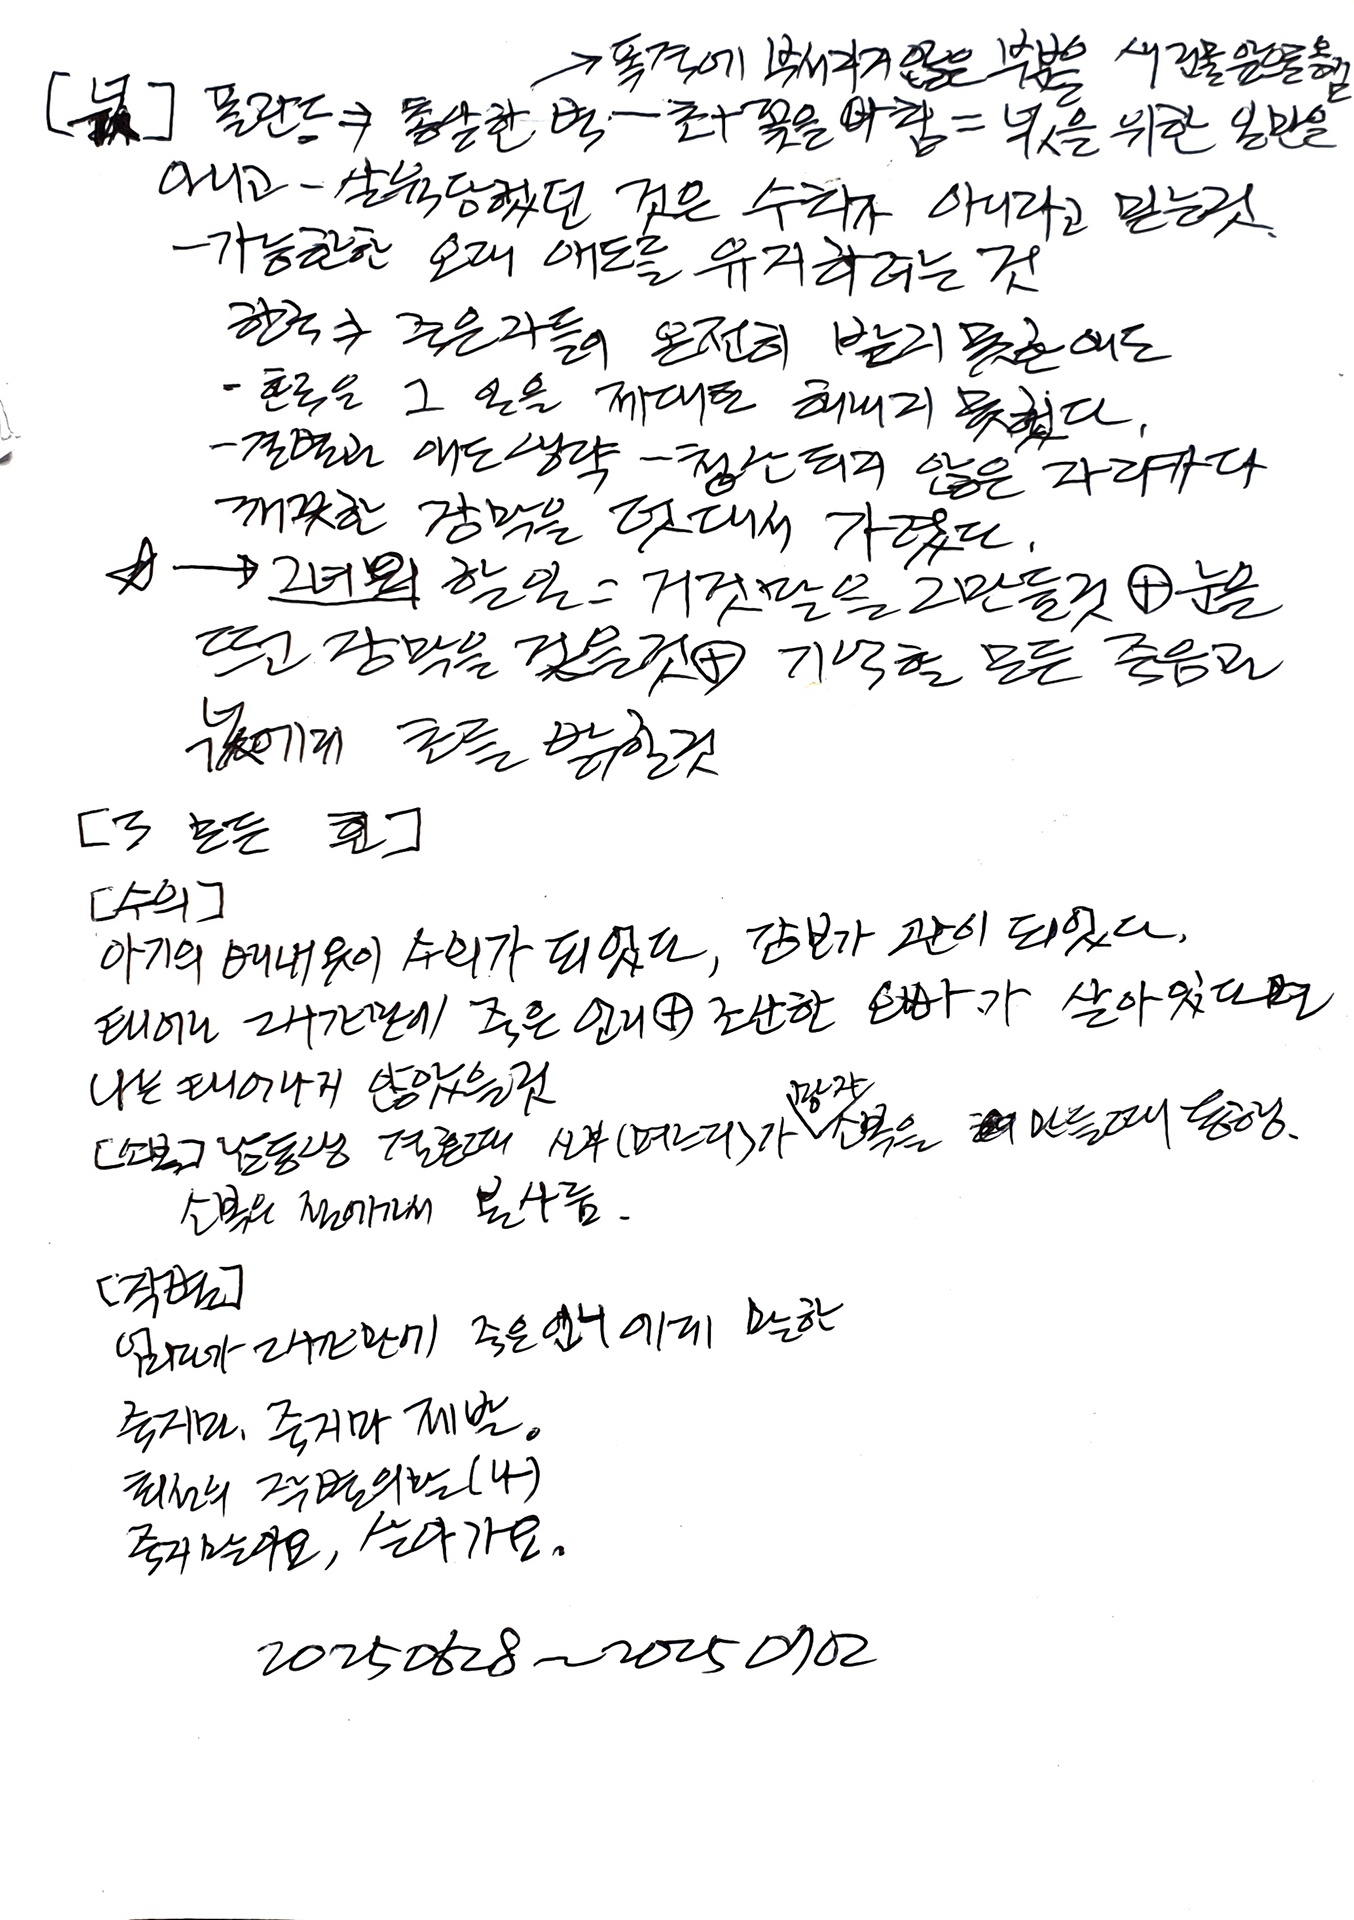 → 폭격에 부서지지 않은 부분을 새 건물 앞으로 옮김
[넋] 폴란드 → 총살한 벽 - 초+꽃을 바침 = 넋을 위한 일만은
아니고 - 살육당했던 것은 수치가 아니라고 믿는것.
- 가능한한 오래 애도를 유지하려는 것
한국 → 죽은자들이 온전히 받지 못한 애도
- 한국은 그 일을 제대로 해내지 못했다.
- 결별과 애도 생략 - 청산되지 않은 자리마다
깨끗한 장막을 덧대서 가렸다.
☆ → 그녀의 할일 = 거짓말을 그만둘것 ⊕ 눈을
뜨고 장막을 걷을것 ⊕ 기억할 모든 죽음과
넋에게 초를 밝힐것
[3 모든 흰]
[수의]
아기의 배내옷이 수의가 되었다, 강보가 관이 되었다.
태어나 2시간만에 죽은 언니 ⊕ 조산한 오빠가 살아있다면
나는 태어나지 않았을것
[소복] 남동생 결혼때 신부(며느리)가 망자 소복을 만들때 동행.
소복은 절에가서 불사름.
[작별]
엄마가 2시간만에 죽은 언니에게 말한
죽지마. 죽지마 제발.
최선의 작별의 말(나)
죽지 말아요, 살아가요.
20250628 ~ 20250702